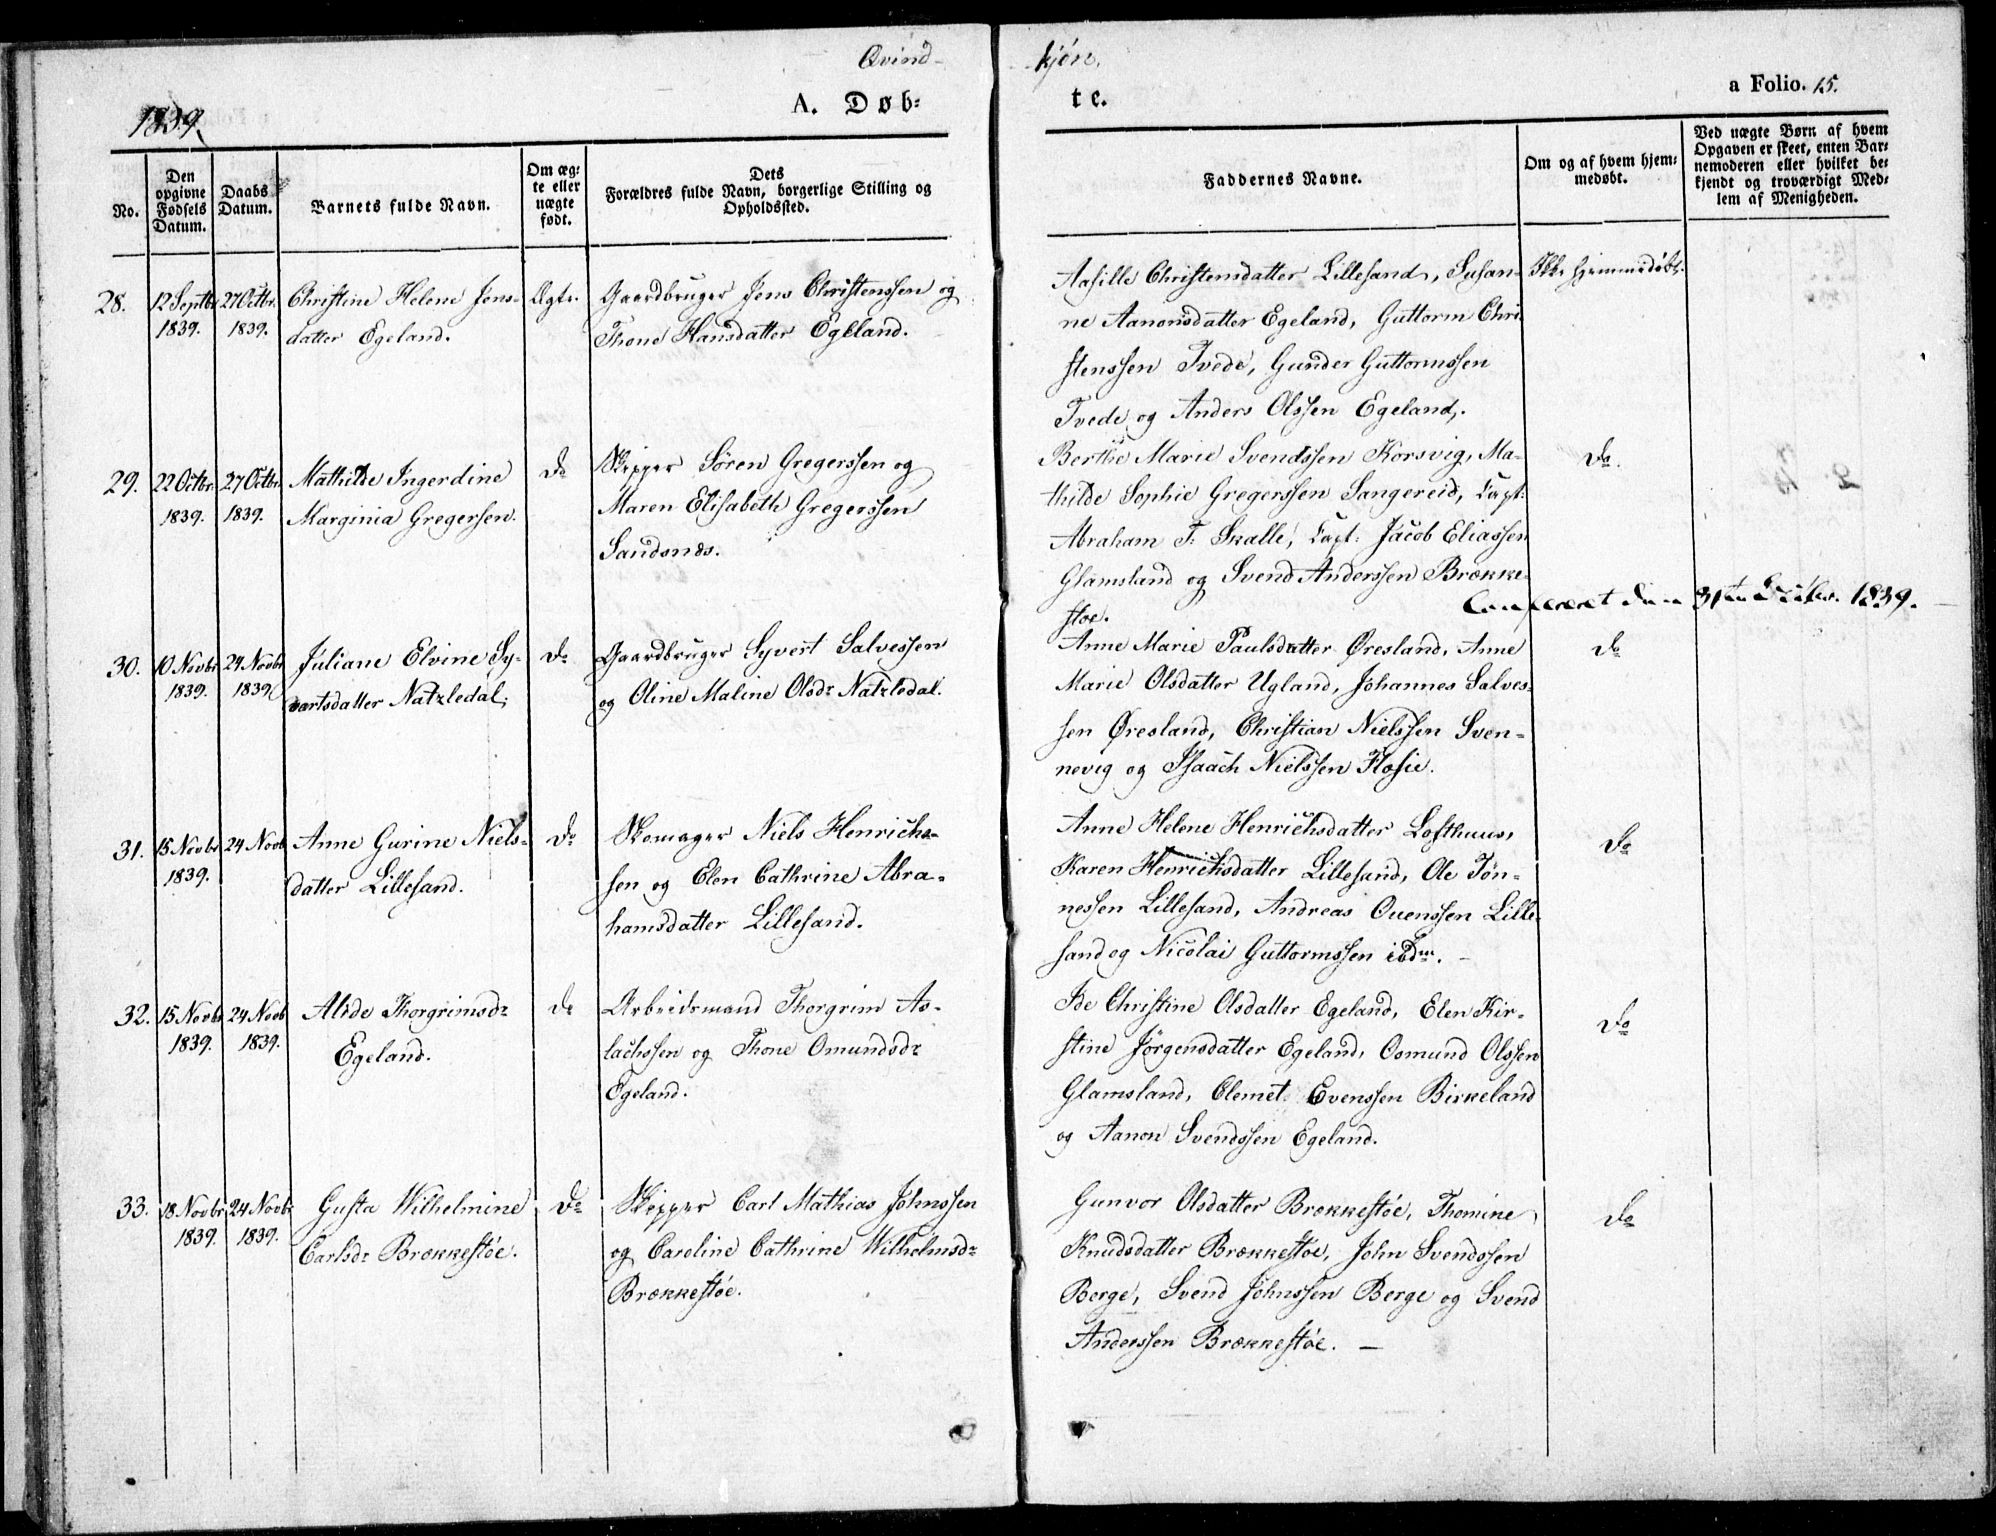 Qvind-
kjön.
1839.
A. Døb=
te.
a Folio. 15.
No.
Den opgivne Fødsels Datum.
Daabs Datum.
Barnets fulde Navn.
Om æg=
te eller
uægte
født.
Dets
Forældres fulde Navn, borgerlige Stilling og
Opholdssted.
Faddernes Navne.
Om og af hvem hjem=
medøbt.
Ved uægte Børn af hvem
Opgaven er skeet, enten Bar=
nemoderen eller hvilket be=
kjendt og troværdigt Med=
lem af Menigheden.
28.
12 Septbr
1839.
27 Octbr.
1839.
Christine Helene Jens-
datter Egeland.
Ægte.
Gaardbruger Jens Christenssen og
Thone Hansdatter Egeland.
Aasille Christensdatter Lillesand, Susan-
ne Aanonsdatter Egeland, Guttorm Chri-
stenssen Tvede, Gunder Guttormssen
Tvede og Anders Olssen Egeland.
Ikke hjemmedøbt.
29.
22 Octbr
1839.
27 Octbr
1839.
Mathilde Ingerdine
Marginia Gregersen.
Do
Skipper Sören Gregerssen og
Maren Elisabeth Gregerssen
Sandsnæs.
Berthe Marie Svendssen Korsvig, Ma-
thilde Sophie Gregerssen Sangereid, Capt:
Abraham T: Skalle, Capt: Jacob Eliassen
Glamsland og Svend Anderssen Brække-
stöe.
Do.
Confereret den 31te Octbr. 1839.
30.
10 Novbr
1839.
24 Novbr
1839
Juliane Elvine Sy-
vertsdatter Natzledal.
Do
Gaardbruger Syvert Salvessen
og Oline Maline Olsdr Natzledal.
Anne Marie Paulsdatter Øresland, Anne
Marie Olsdatter Ugland, Johannes Salves-
sen Øresland, Christian Nielssen Sven-
nevig og Isaach Nielssen Flosie.
Do
31.
15 Novbr
1839.
24 Novb
Anne Gurine Niels-
datter Lillesand.
Do
Skomager Niels Henrichs-
sen og Elen Cathrine Abra-
hamsdatter Lillesand.
Anne Helene Henrichsdatter Lofthuus,
Karen Henrichsdatter Lillesand, Ole Tön-
nessen Lillesand, Andreas Ouenssen Lille-
sand og Nicolai Guttormssen ibdm. -
Do
32.
15 Novbr
1839.
24 Novb
1839.
Alide Thorgrimsdr
Egeland.
Do
Arbeidsmand Thorgrim As-
lachssen og Thone Omundsdr
Egeland.
Ide Christine Olsdatter Egeland, Elen Kir-
stine Jörgensdatter Egeland, Osmund Olssen
Glamsland, Clemet Evenssen Birkeland
og Aanon Svendssen Egeland.
Do
33.
18 Novbr
1839.
24 Novbr
1839.
Gusta Wilhelmine
Carlsdr Brækkestöe.
Do
Skipper Carl Mathias Johnssen
og Caroline Cathrine Wilhelmsdr
Brækkestöe.
Gunvor Olsdatter Brækkestöe, Thomine
Knudsdatter Brækkestöe, John Svendssen
Berge, Svend Johnssen Berge og Svend
Anderssen Brækkestöe. —
Do